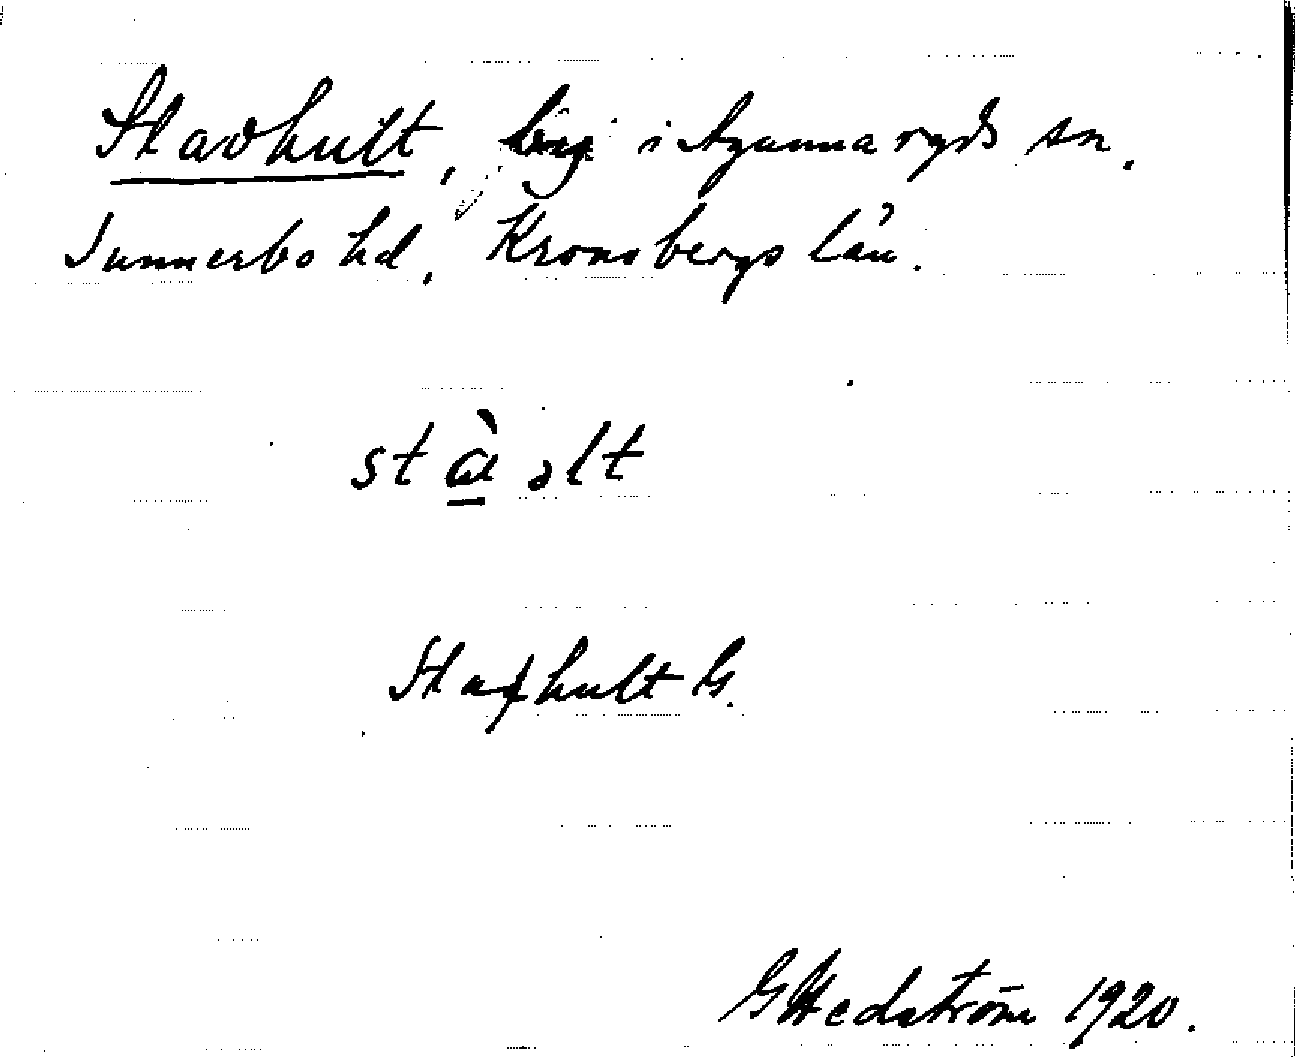 Stavhult, i Agunnaryds sn,
Sunnerbo hd, Kronobergs län.
st ὰ əlt
Stafhult G.
G Hedström 1920.